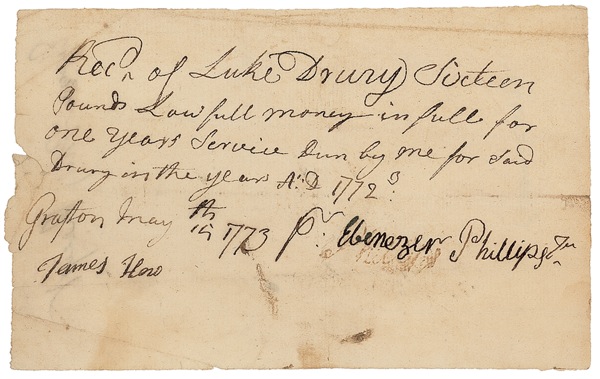 Recd of Luke Drury Sixteen
Pounds Lawfull money in full for
one years Service Dun by me for Said
Drury in the years A:D 1772
Grafton May th 1773 pr Ebenezer Phillips Jur
James How